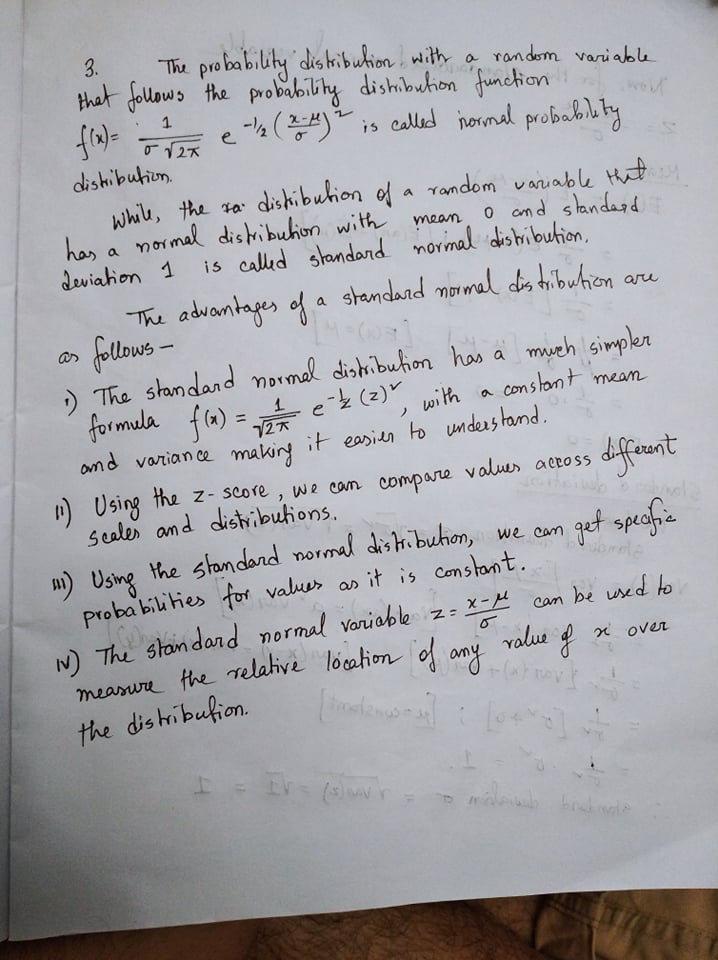 3. The probability distribution with a random variable
that follows the probability distribution function
f(x) = 1/(σ√2π) e^(-1/2 ((x-μ)/σ)^2) is called normal probability
distribution.
While, the ra. distribution of a random variable that
has a normal distribution with mean 0 and standard
deviation 1 is called standard normal distribution.
The advantages of a standard normal distribution are
as follows –
i) The standard normal distribution has a much simpler
formula f(x) = 1/√2π e^(-1/2 (z)^2), with a constant mean
and variance making it easier to understand.
ii) Using the z-score, we can compare values across different
scales and distributions.
iii) Using the standard normal distribution, we can get specific
probabilities for values as it is constant.
iv) The standard normal variable z = (x-μ)/σ can be used to
measure the relative location of any value of x over
the distribution.